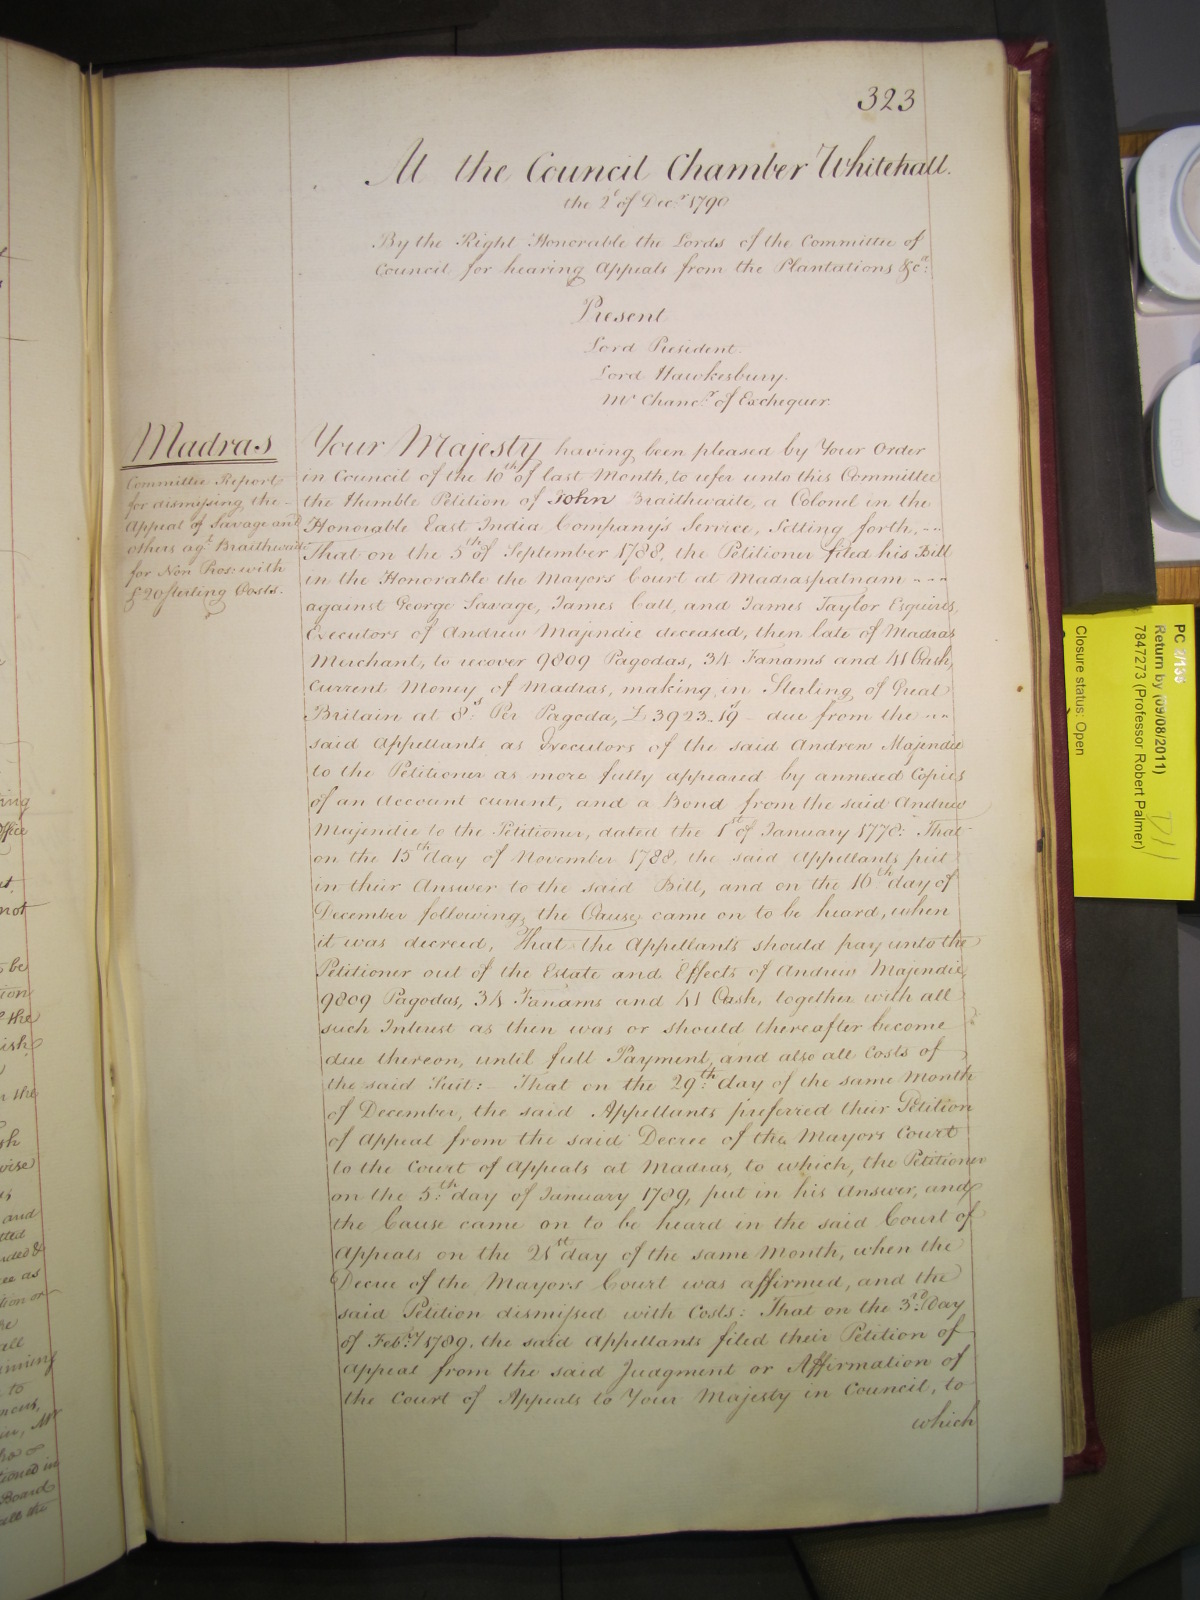 323
At the Council Chamber Whitehall.
the 2d of Decr. 1790
By the Right Honorable the Lords of the Committee of
Council for hearing Appeals from the Plantations &ca:
Present
Lord President.
Lord Hawkesbury.
Mr Chancr. of Exchequer.
Madras
Committee Report
for dismissing the
Appeal of Savage and
others agt. Braithwaite
for Non Pros: with
£20 sterling Costs.
Your Majesty having been pleased by Your Order
in Council of the 10th of last Month, to refer unto this Committee
the Humble Petition of John Braithwaite, a Colonel in the
Honorable East India Company's Service, Setting forth, --
That on the 5th of September 1788, the Petitioner filed his Bill
in the Honorable the Mayors Court at Madraspatnam ---
against George Savage, James Call, and James Taylor Esquires,
Executors of Andrew Majendie deceased, then late of Madras
Merchant, to recover 9809 Pagodas, 34 Fanams and 41 Cash,
Current Money of Madras, making in Sterling of Great
Britain at 8s. Per Pagoda, £3923..19s - due from the --
said Appellants as Executors of the said Andrew Majendie
to the Petitioner as more fully appeared by annexed Copies
of an Account current, and a Bond from the said Andrew
Majendie to the Petitioner, dated the 1st of January 1778: That
on the 15th day of November 1788, the said Appellants put
in their Answer to the said Bill, and on the 16th day of
December following, the Cause came on to be heard, when
it was decreed, That the Appellants should pay unto the
Petitioner out of the Estate and Effects of Andrew Majendie,
9809 Pagodas, 34 Fanams and 41 Cash, together with all
such Interest as then was or should thereafter become
due thereon, until full Payment, and also all Costs of
the said Suit: - That on the 29th: day of the same Month
of December, the said Appellants preferred their Petition
of Appeal from the said Decree of the Mayors Court
to the Court of Appeals at Madras, to which, the Petitioner
on the 5th: day of January 1789, put in his Answer, and
the Cause came on to be heard in the said Court of
Appeals on the 21st day of the same Month, when the
Decree of the Mayors Court was affirmed, and the
said Petition dismissed with Costs: That on the 3rd: Day
of Febry. 1789. the said Appellants filed their Petition of
Appeal from the said Judgment or Affirmation of
the Court of Appeals to Your Majesty in Council, to
which
PC 2/135
Return by (09/08/2011)
7847273 (Professor Robert Palmer)
Closure status: Open